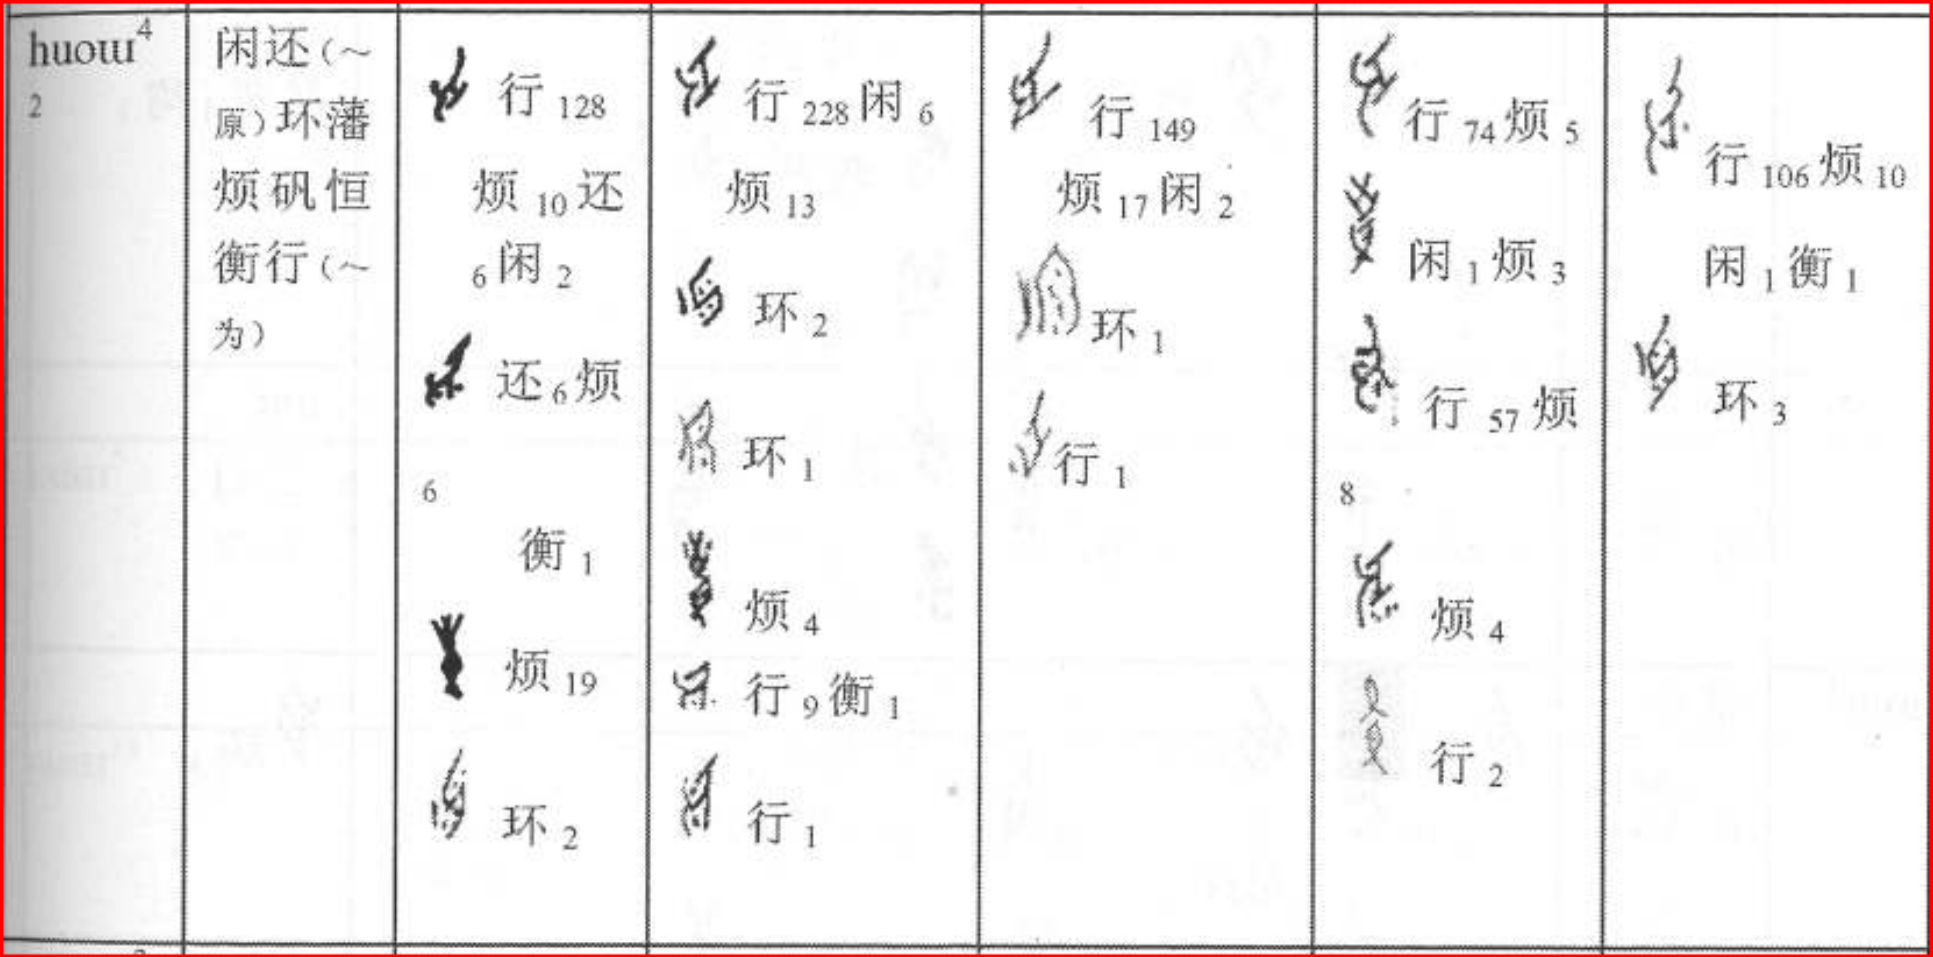 huoɯ⁴
2
闲还(～
原)环藩
烦矾恒
衡行(～
为)
行 128
烦 10 还
6 闲 2
还 6 烦
6
衡 1
烦 19
环 2
行 228 闲 6
烦 13
环 2
环 1
烦 4
行 9 衡 1
行 1
行 149
烦 17 闲 2
环 1
行 1
行 74 烦 5
闲 1 烦 3
行 57 烦
8
烦 4
行 2
行 106 烦 10
闲 1 衡 1
环 3